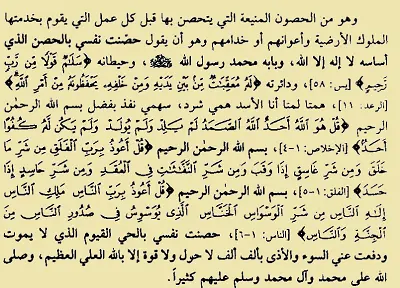 وهو من الحصون المنيعة التي يتحصن بها قبل كل عمل التي يقوم بخدمتها
الملوك الأرضية وأعوانهم أو خدامهم وهو أن يقول حصّنت نفسي بالحصن الذي
أساسه لا إله إلا الله، وبابه محمد رسول الله ﷺ، وحيطانه ﴿سَلَٰمٌ قَوْلًا مِّن رَّبٍّ
رَّحِيمٍ﴾ [يس: ٥٨]، ودائرته ﴿لَهُۥ مُعَقِّبَٰتٌ مِّنۢ بَيْنِ يَدَيْهِ وَمِنْ خَلْفِهِۦ يَحْفَظُونَهُۥ مِنْ أَمْرِ ٱللَّهِ﴾
[الرعد: ١١]، همتا لمتا أنا الأسد همي شرد، سهمي نفذ بفضل بسم الله الرحمٰن
الرحيم ﴿قُلْ هُوَ ٱللَّهُ أَحَدٌ ٱللَّهُ ٱلصَّمَدُ لَمْ يَلِدْ وَلَمْ يُولَدْ وَلَمْ يَكُن لَّهُۥ كُفُوًا
أَحَدٌۢ﴾ [الإخلاص: ١-٤]، بسم الله الرحمٰن الرحيم ﴿قُلْ أَعُوذُ بِرَبِّ ٱلْفَلَقِ مِن شَرِّ مَا
خَلَقَ وَمِن شَرِّ غَاسِقٍ إِذَا وَقَبَ وَمِن شَرِّ ٱلنَّفَّٰثَٰتِ فِى ٱلْعُقَدِ وَمِن شَرِّ حَاسِدٍ إِذَا
حَسَدَ﴾ [الفلق: ١-٥]، بسم الله الرحمٰن الرحيم ﴿قُلْ أَعُوذُ بِرَبِّ ٱلنَّاسِ مَلِكِ ٱلنَّاسِ
إِلَٰهِ ٱلنَّاسِ مِن شَرِّ ٱلْوَسْوَاسِ ٱلْخَنَّاسِ ٱلَّذِى يُوَسْوِسُ فِى صُدُورِ ٱلنَّاسِ مِنَ
ٱلْجِنَّةِ وَٱلنَّاسِ﴾ [الناس: ١-٦]، حصنت نفسي بالحي القيوم الذي لا يموت
ودفعت عني السوء والأذى بألف ألف لا حول ولا قوة إلا بالله العلي العظيم، وصلى
الله على محمد وآل محمد وسلم عليهم كثيراً.